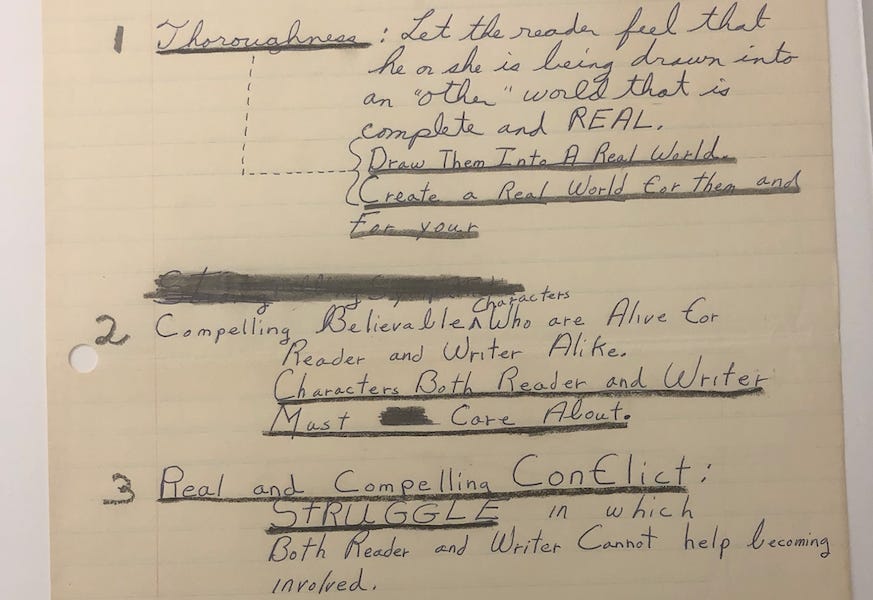 1 Thoroughness: Let the reader feel that
he or she is being drawn into
an "other" world that is
complete and REAL.
Draw Them Into A Real World.
Create a Real World for them and
For your
Characters
2 Compelling Believable ^ Who are Alive for
Reader and Writer Alike.
Characters Both Reader and Writer
Must Care About.
3 Real and Compelling Conflict:
STRUGGLE in which
Both Reader and Writer Cannot help becoming
involved.